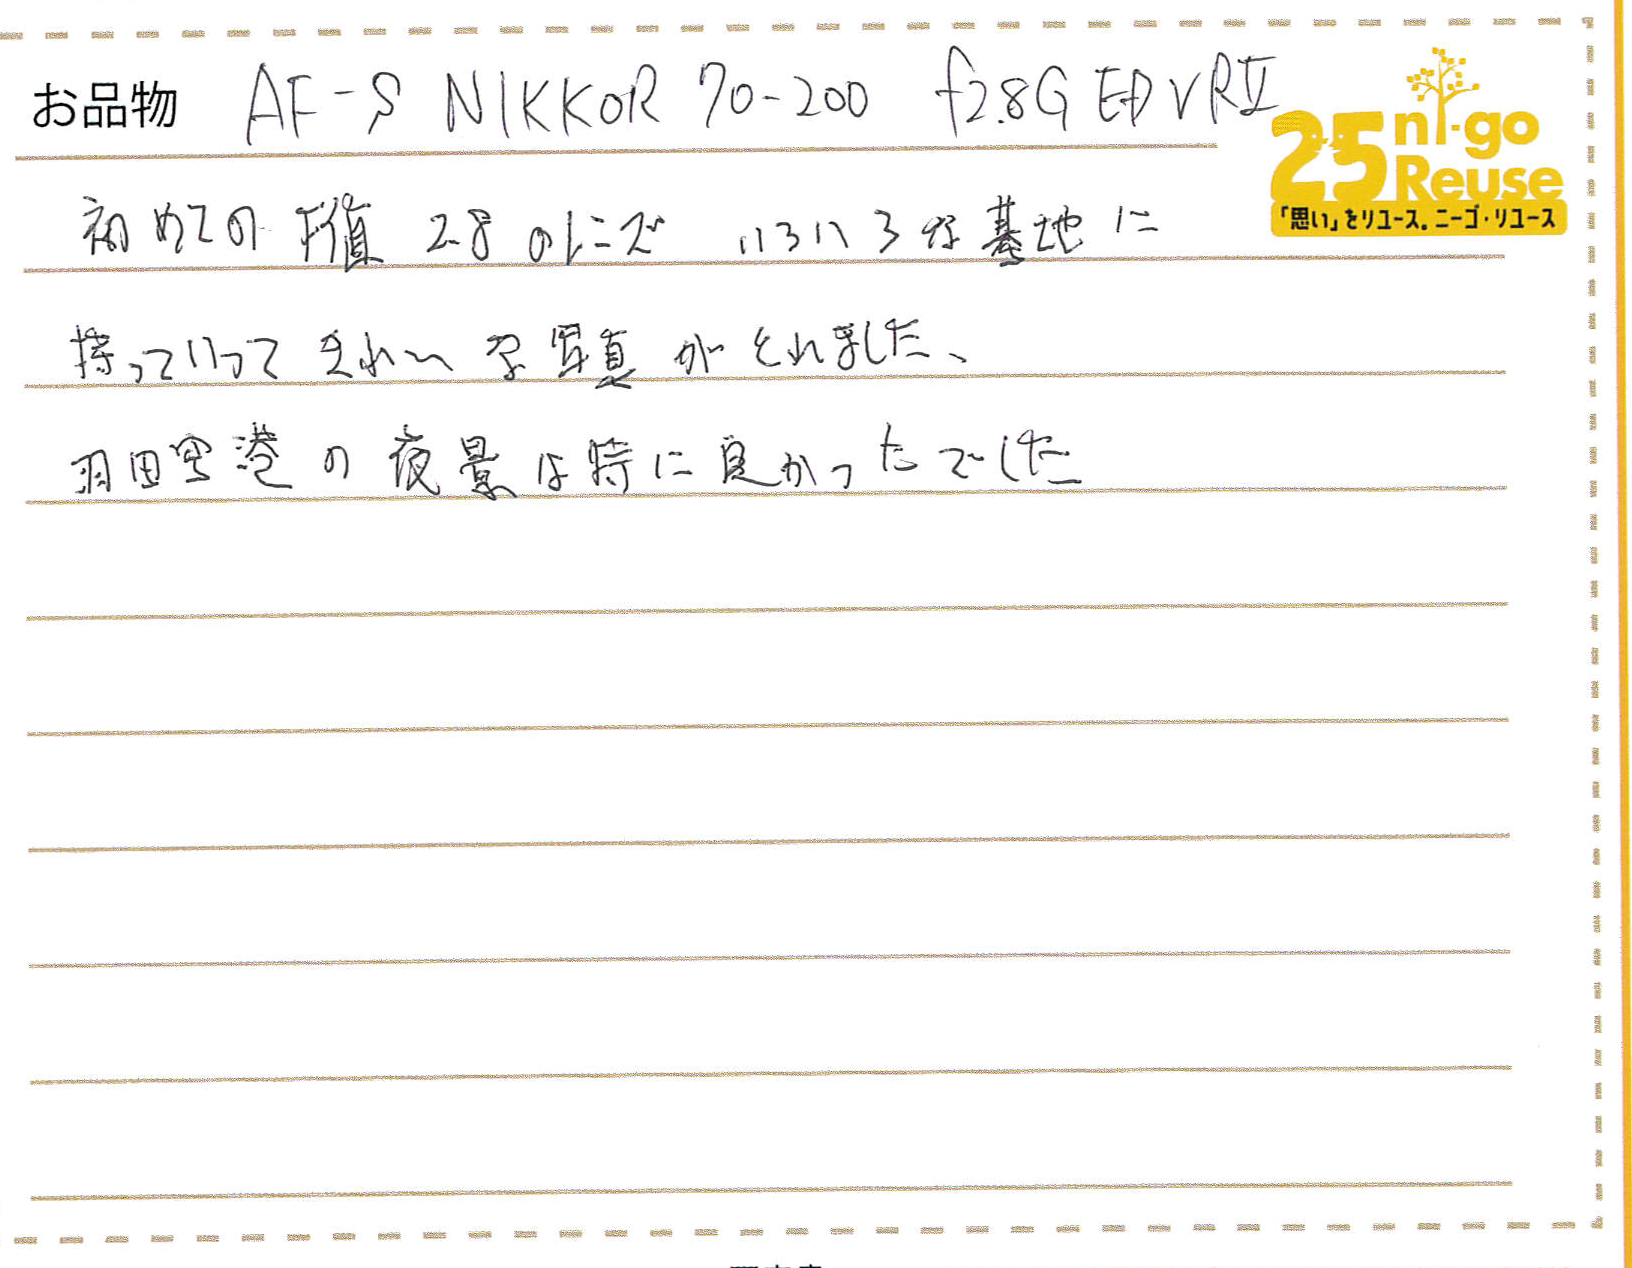 お品物 AF-S NIKKOR 70-200 f2.8G ED VRⅡ
25 ni-go Reuse
「思い」をリユース。ニーゴ・リユース
初めてのF値 2.8のレンズ いろいろな基地に
持っていってきれいな写真がとれました、
羽田空港の夜景は特に良かったでした